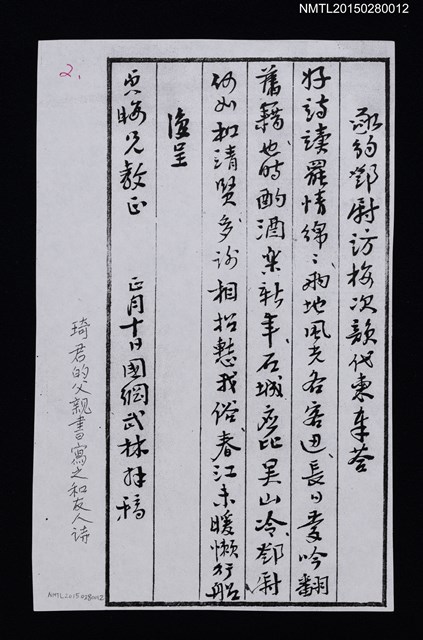 NMTL20150280012
2.
承約鄧尉訪梅次韻代柬奉答
好詩讀罷情綿〻兩地風光各審迴長日愛吟翻
舊籍也時酌酒樂新年石城應比吳山冷鄧尉
何如和靖賢多謝相招慙我俗春江未暖懶行船
漁呈
貞晦兄教正 正月十日國綱武林拜稿
琦君的父親書寫之和友人詩
NMTL20150280012